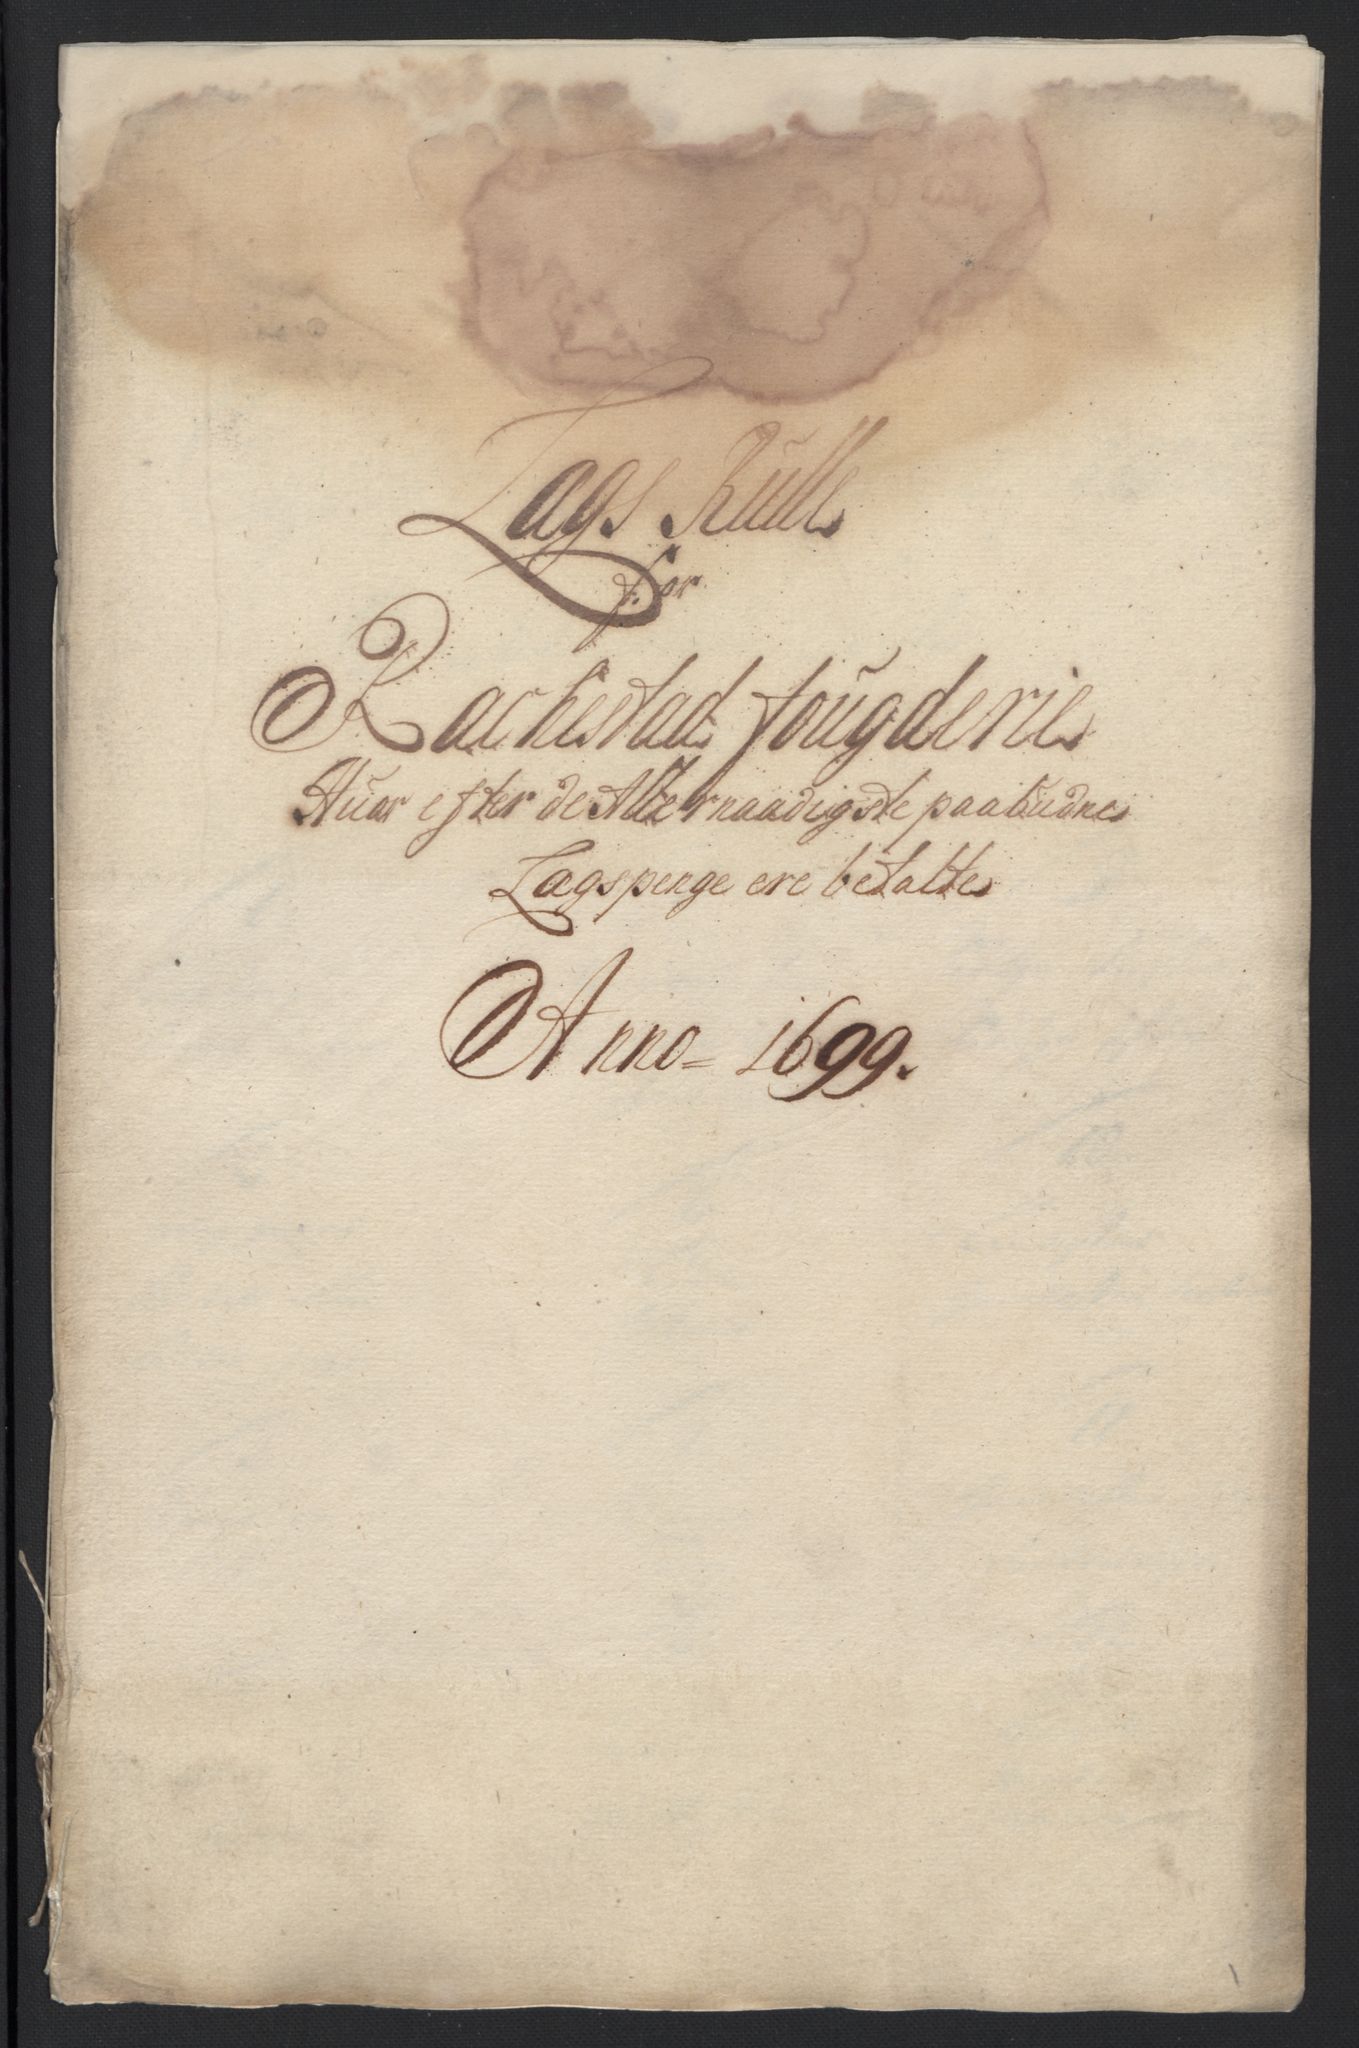 Lags Rulle
for
Rachestad fougderie
Huor efter de Allernaadigste paabudne
Lagspenge ere betalte
Anno = 1699.
1